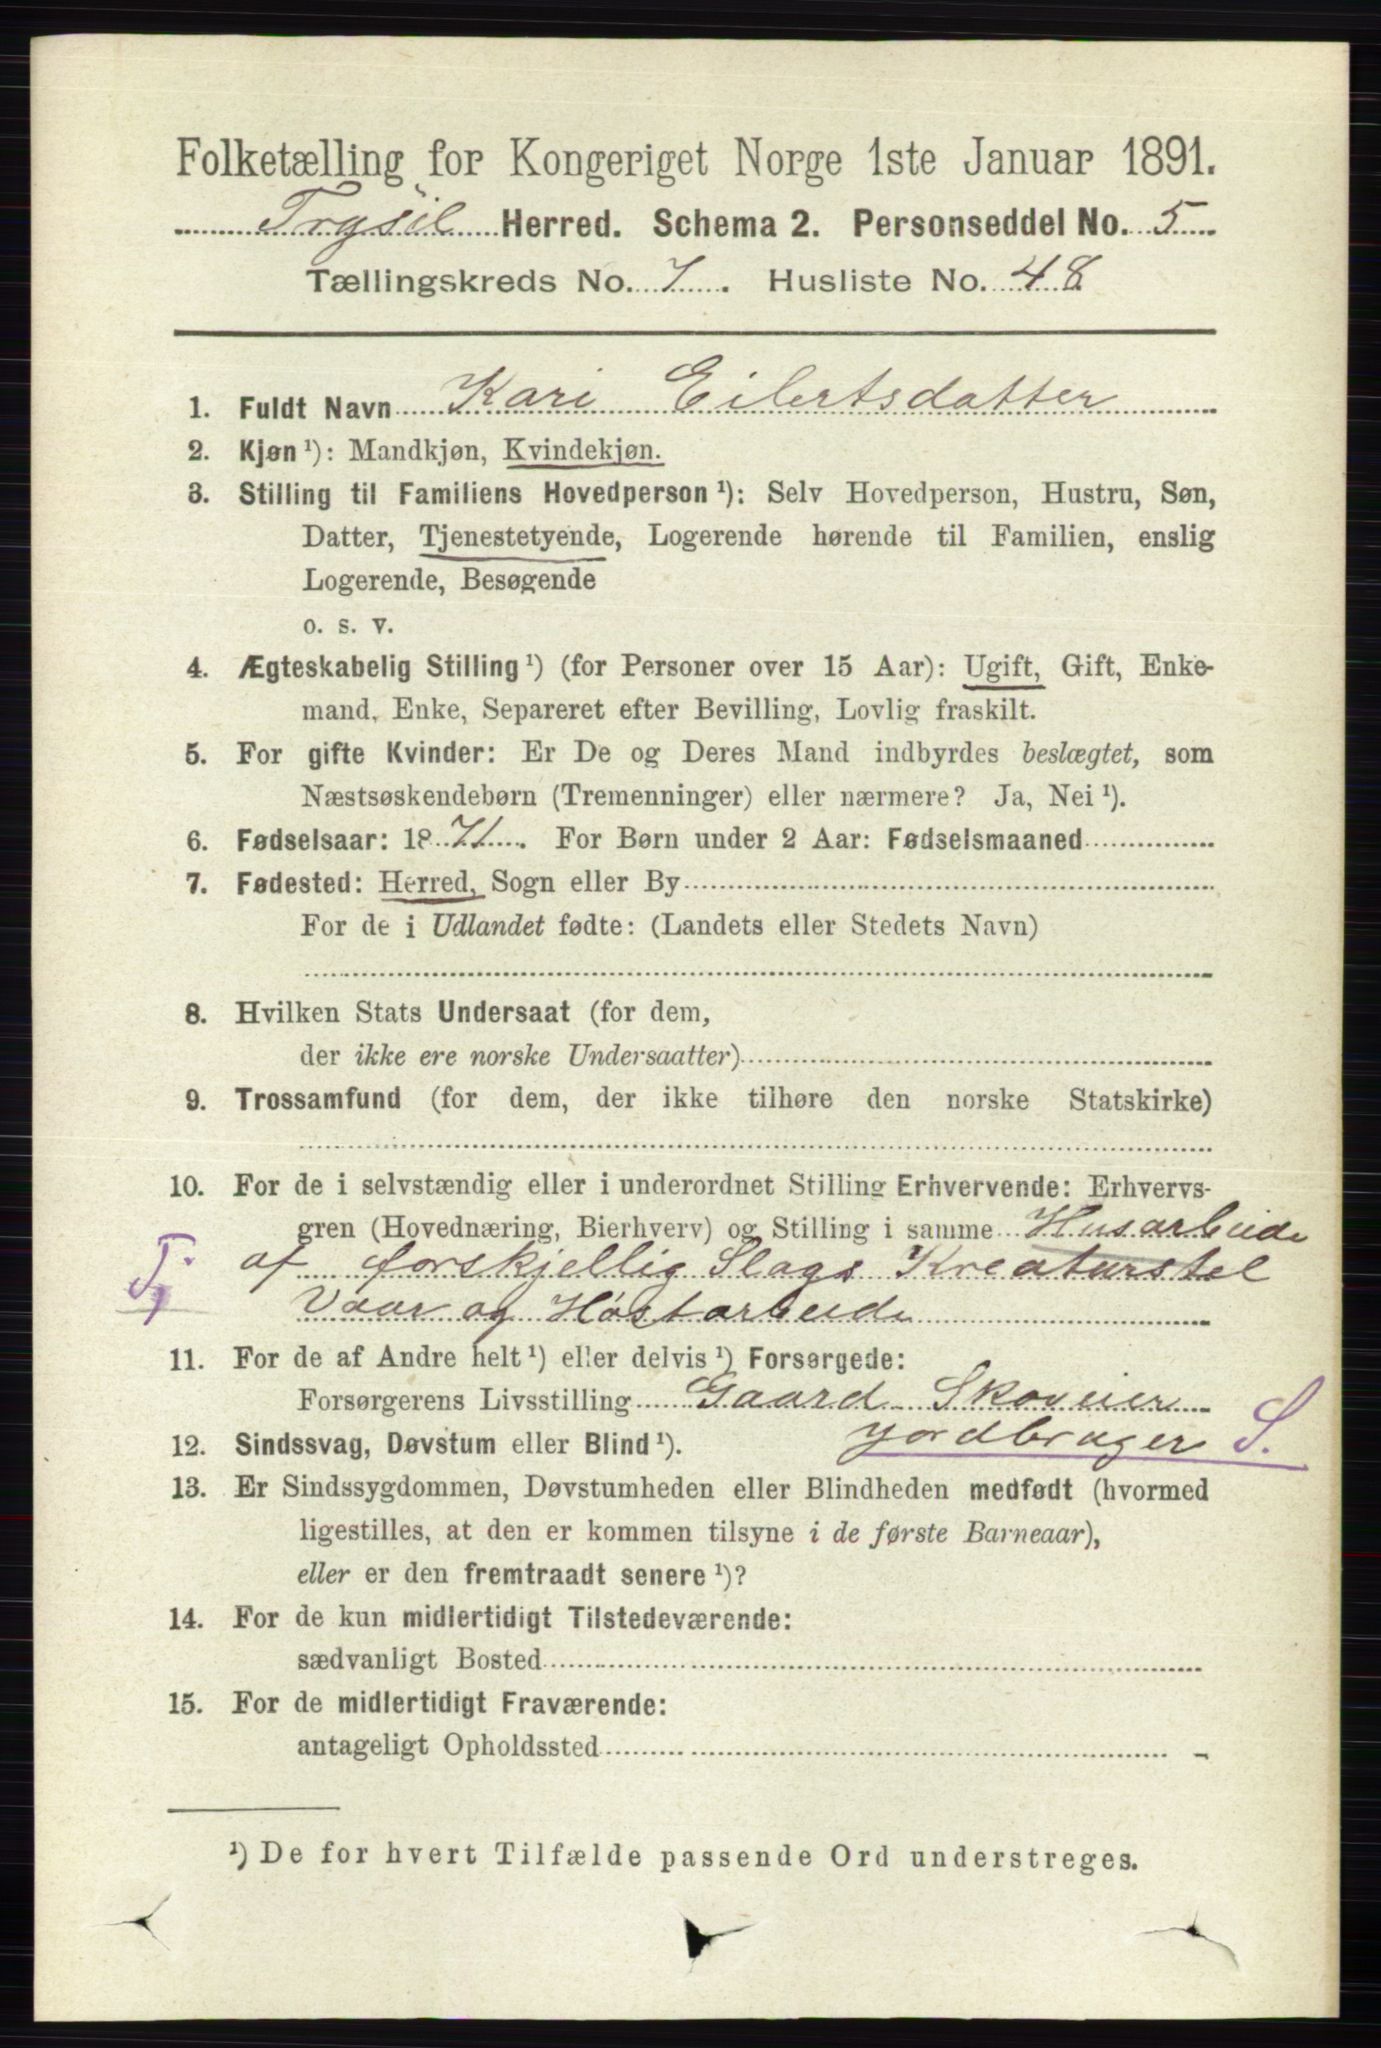 Folketælling for Kongeriget Norge 1ste Januar 1891.
Trysil Herred. Schema 2. Personseddel No. 5
Tællingskreds No. 7. Husliste No. 48
1. Fuldt Navn Kari Eilertsdatter
2. Kjøn ¹): Mandkjøn, Kvindekjøn.
3. Stilling til Familiens Hovedperson ¹): Selv Hovedperson, Hustru, Søn,
Datter, Tjenestetyende, Logerende hørende til Familien, enslig
Logerende, Besøgende
o. s. v.
4. Ægteskabelig Stilling ¹) (for Personer over 15 Aar): Ugift, Gift, Enke-
mand, Enke, Separeret efter Bevilling, Lovlig fraskilt.
5. For gifte Kvinder: Er De og Deres Mand indbyrdes beslægtet, som
Næstsøskendebørn (Tremenninger) eller nærmere? Ja, Nei ¹).
6. Fødselsaar: 1871. For Børn under 2 Aar: Fødselsmaaned
7. Fødested: Herred, Sogn eller By
For de i Udlandet fødte: (Landets eller Stedets Navn)
8. Hvilken Stats Undersaat (for dem,
der ikke ere norske Undersaatter)
9. Trossamfund (for dem, der ikke tilhøre den norske Statskirke)
10. For de i selvstændig eller i underordnet Stilling Erhvervende: Erhvervs-
gren (Hovednæring, Bierhverv) og Stilling i samme Husarbeide
af forskjellig Slags Kreaturstel
Vaar og Høstarbeide
11. For de af Andre helt ¹) eller delvis ¹) Forsørgede:
Forsørgerens Livsstilling Gaard Skoveier
12. Sindssvag, Døvstum eller Blind ¹). Jordbruger S.
13. Er Sindssygdommen, Døvstumheden eller Blindheden medfødt (hvormed
ligestilles, at den er kommen tilsyne i de første Barneaar),
eller er den fremtraadt senere ¹)?
14. For de kun midlertidigt Tilstedeværende:
sædvanligt Bosted
15. For de midlertidigt Fraværende:
antageligt Opholdssted
¹) De for hvert Tilfælde passende Ord understreges.